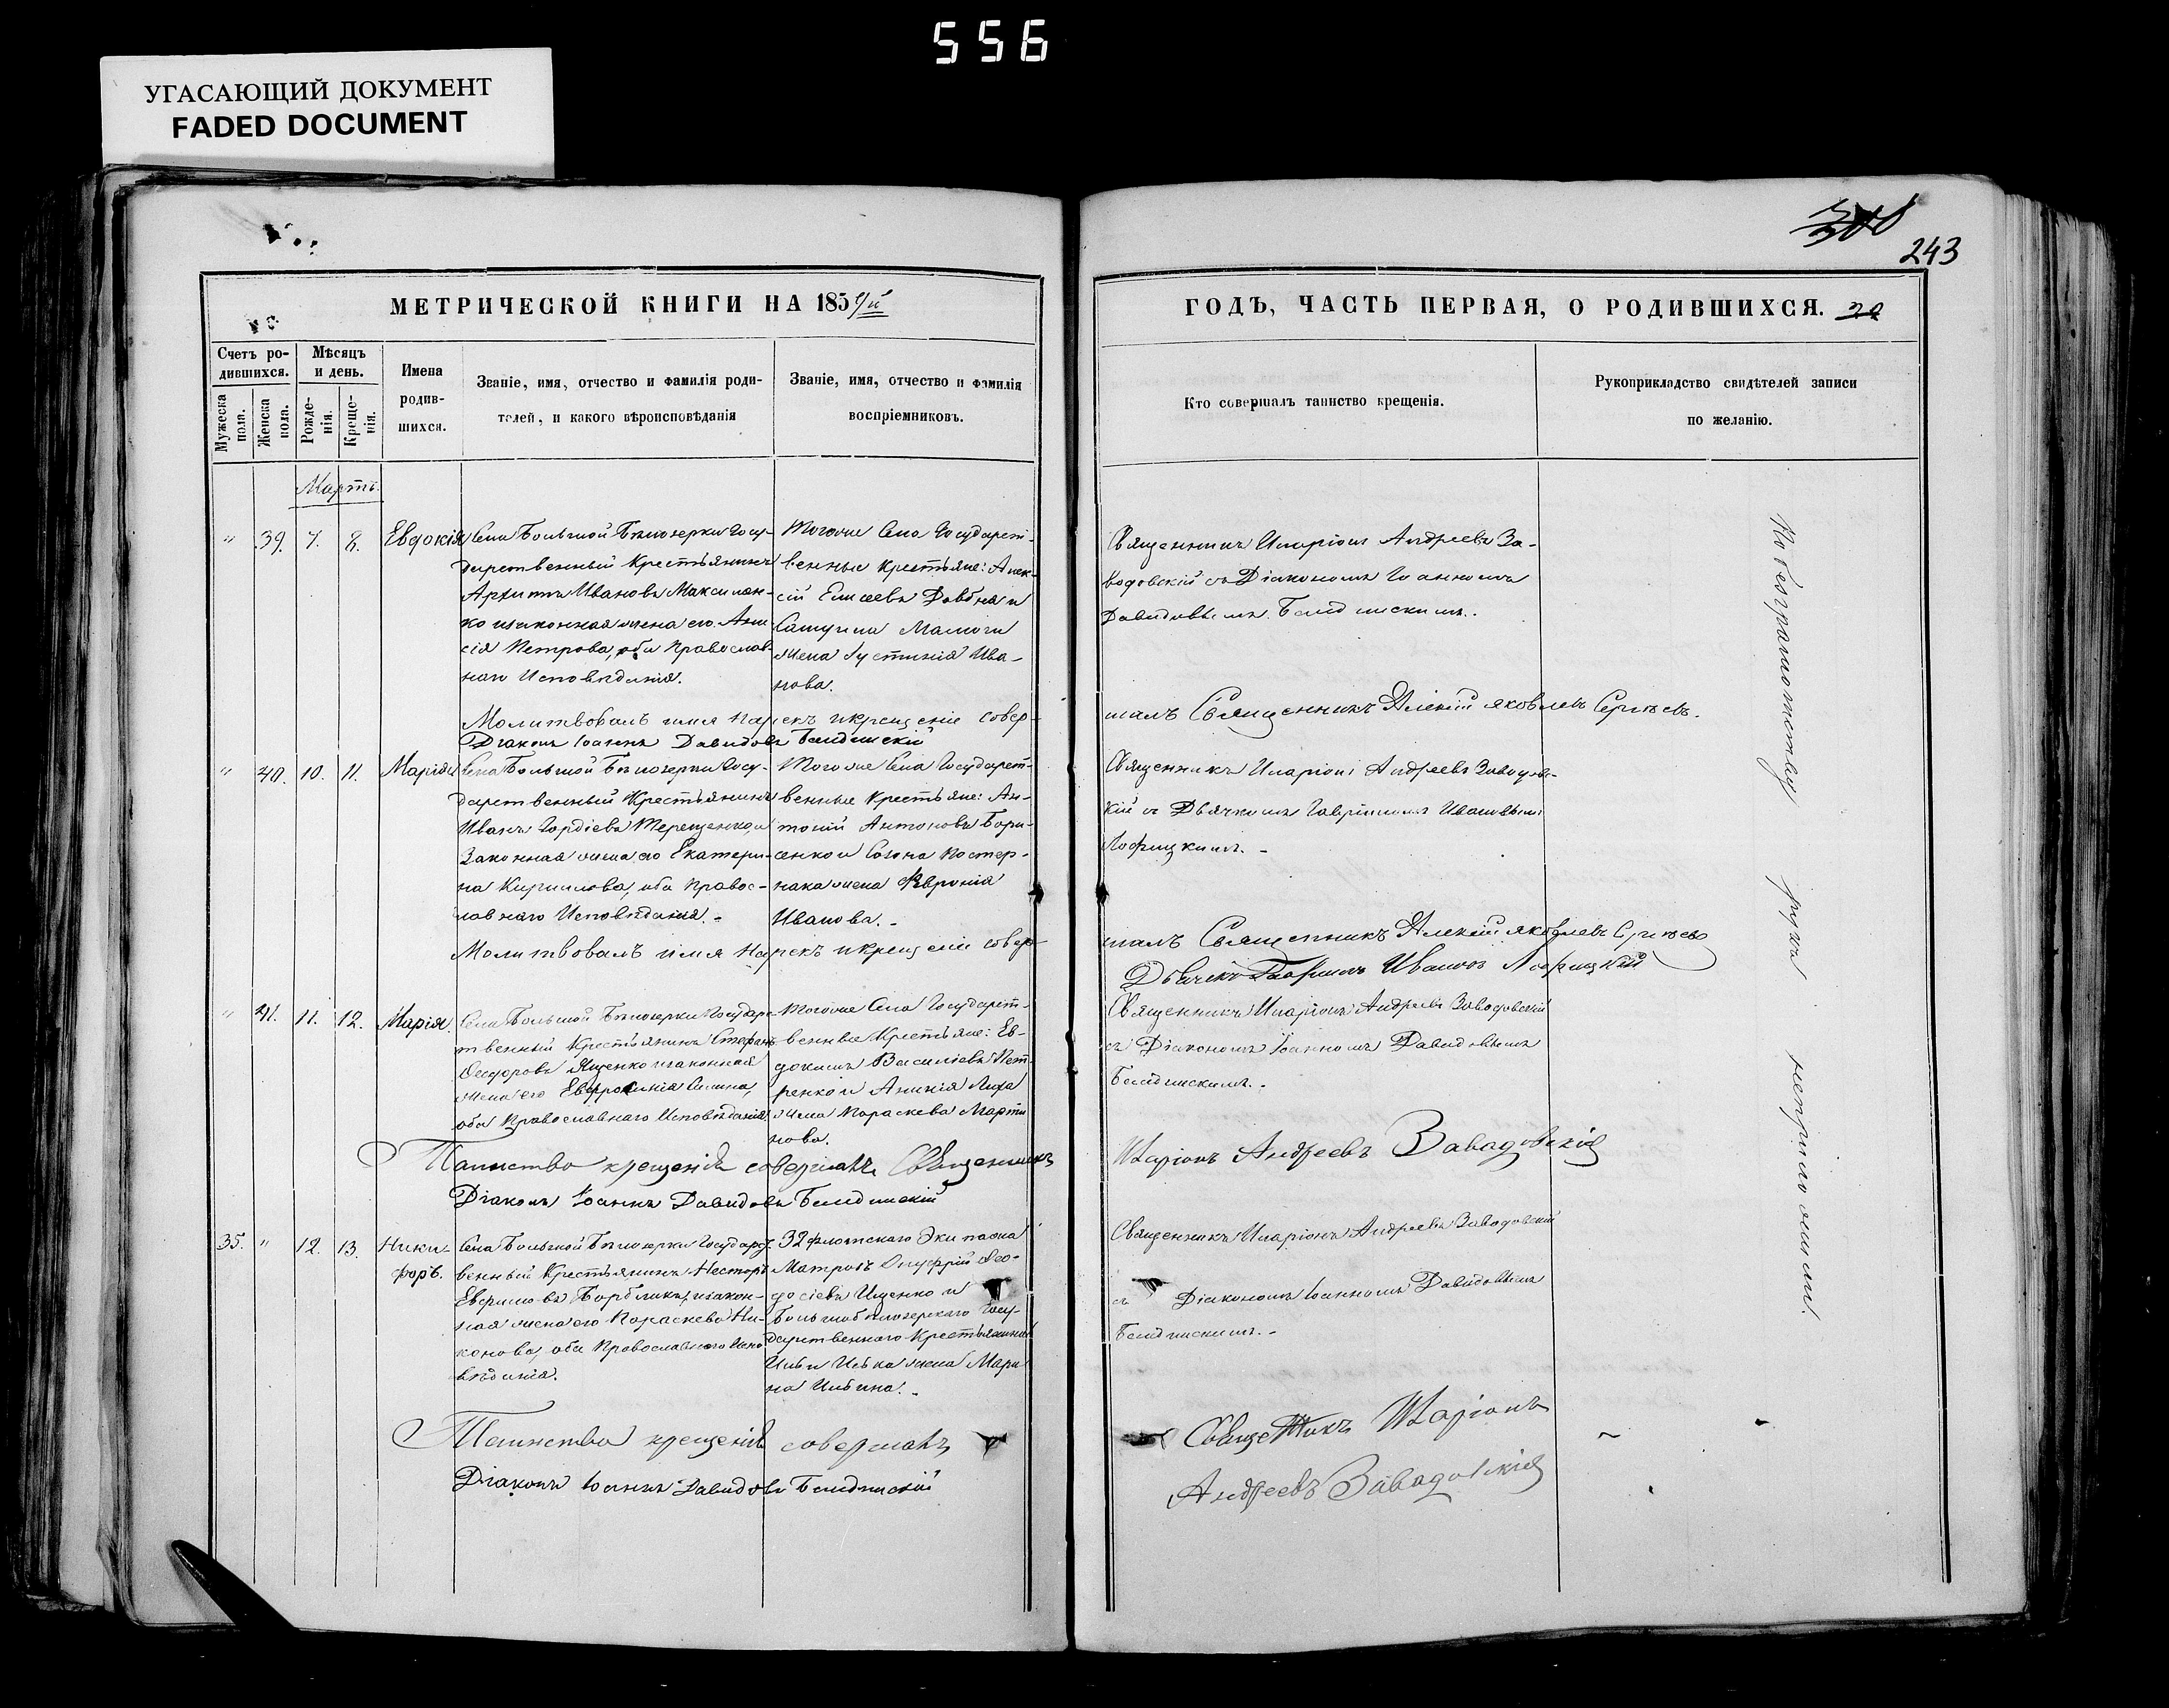 556
УГАСАЮЩИЙ ДОКУМЕНТ
FADED DOCUMENT
243
МЕТРИЧЕСКОЙ КНИГИ НА 185
Счетъ ро-
дившихся.
Мужеска
пола.
Женска
пола.
Мѣсяцъ
и день.
Рожде-
нія.
Креще-
нія.
Имена
родив-
шихся.
Званіе, имя, отчество и фамилія роди-
телей, и какого вѣроисповѣданія
Званіе, имя, отчество и фамилія
воспріемниковъ.
ГОДЪ, ЧАСТЬ ПЕРВАЯ, О РОДИВШИХСЯ.
Кто совершалъ таинство крещенія.
Рукоприкладство свидѣтелей записи
по желанію.
Мартъ.
" 39. 7. 8. Евдокія
Села Большой Бѣлозерки Госу-
дарственный Крестьянинъ
Архипъ Ивановъ Максимен-
ко и законная жена его Ани-
сія Петрова, оба Православ-
наго Исповѣданія.
Тогоже Села Государст-
венные Крестьяне: Алек-
сій Елисеевъ Довбня и
жена Іустинія Ива-
нова.
Священникъ Иларіонъ Андреевъ За-
вадовскій съ Діакономъ Іоанномъ
Давидовымъ
Молитвовалъ имя нарекъ и крещеніе совер-
шалъ Священникъ Алексій Яковлевъ Сергѣевъ.
Діаконъ Іоаннъ Давидовъ
" 40. 10. 11. Марія
Села Большой Бѣлозерки Госу-
дарственный Крестьянинъ
Иванъ Гордіевъ Терещенко и
Законная жена его Екатери-
на Кирилова, оба Правос-
лавнаго Исповѣданія.-
Тогоже Села Государст-
венные Крестьяне: Ан-
тоній Антоновъ Бори-
сенко и Созона Костер-
нака жена Февронія
Иванова.-
Священникъ Иларіонъ Андреевъ Завадовс-
кій съ Дьячкомъ Гавріиломъ Ивановымъ
Молитвовалъ имя Нарекъ и крещеніе совер-
шалъ Священникъ Алексій Яковлевъ Сергѣевъ
Дьячекъ Гавріилъ Ивановъ
" 41. 11. 12. Марія.
Села Большой Бѣлозерки Государс-
твенный Крестьянинъ Стефанъ
Феодоровъ Яценко и законная
жена его Евфросинія
оба Православнаго Исповѣданія.
Тогоже Села Государст-
венные Крестьяне: Ев-
докимъ Василіевъ Пет-
ренко и
жена Параскева Марти-
нова.
Священникъ Иларіонъ Андреевъ Завадовскій
съ Діакономъ Іоанномъ Давидовымъ
Таинство крещенія совершалъ Священникъ
Иларіонъ Андреевъ Завадовскій
Діаконъ Іоаннъ Давидовъ
35. " 12. 13. Ники-
форъ.
Села Большой Бѣлозерки Государст-
венный Крестьянинъ Несторъ
и закон-
ная жена его Параскева Ни-
конова, оба Православнаго Испо-
вѣданія.
32 флотскаго Экипажа
Матросъ Онуфрій Фео-
досіевъ Ищенко и
Большобѣлозерскаго Госу-
дарственнаго Крестьянина
жена Мари-
на Ильина.-
Священникъ Иларіонъ Андреевъ Завадовскій
съ Діакономъ Іоанномъ Давидовымъ
Таинство крещенія совершалъ
Священникъ Иларіонъ
Андреевъ Завадовскій
Діаконъ Іоаннъ Давидовъ
По безграмотству руки неприложили.